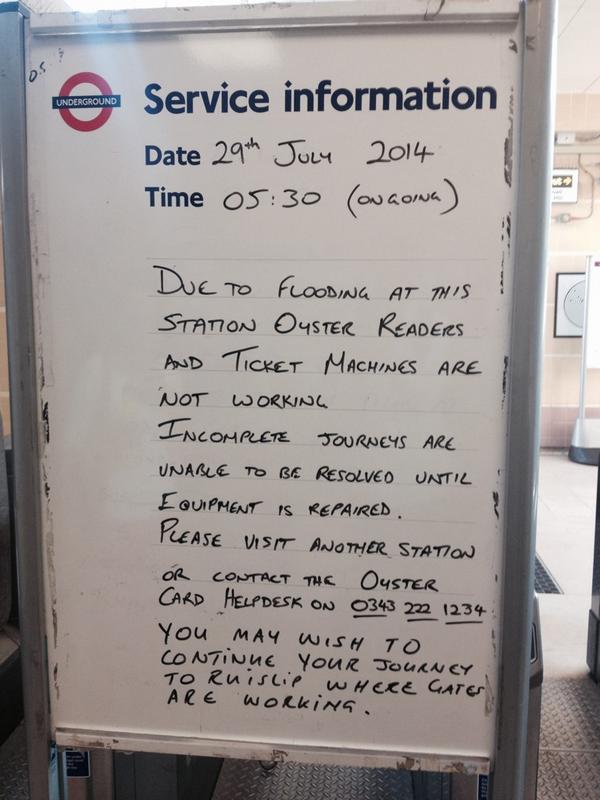 UNDERGROUND
Service information
Date 29th July 2014
Time 05:30 (ONGOING)
DUE TO FLOODING AT THIS
STATION OYSTER READERS
AND TICKET MACHINES ARE
NOT WORKING
INCOMPLETE JOURNEYS ARE
UNABLE TO BE RESOLVED UNTIL
EQUIPMENT IS REPAIRED.
PLEASE VISIT ANOTHER STATION
OR CONTACT THE OYSTER
CARD HELPDESK ON 0343 222 1234
YOU MAY WISH TO
CONTINUE YOUR JOURNEY
TO RUISLIP WHERE GATES
ARE WORKING.